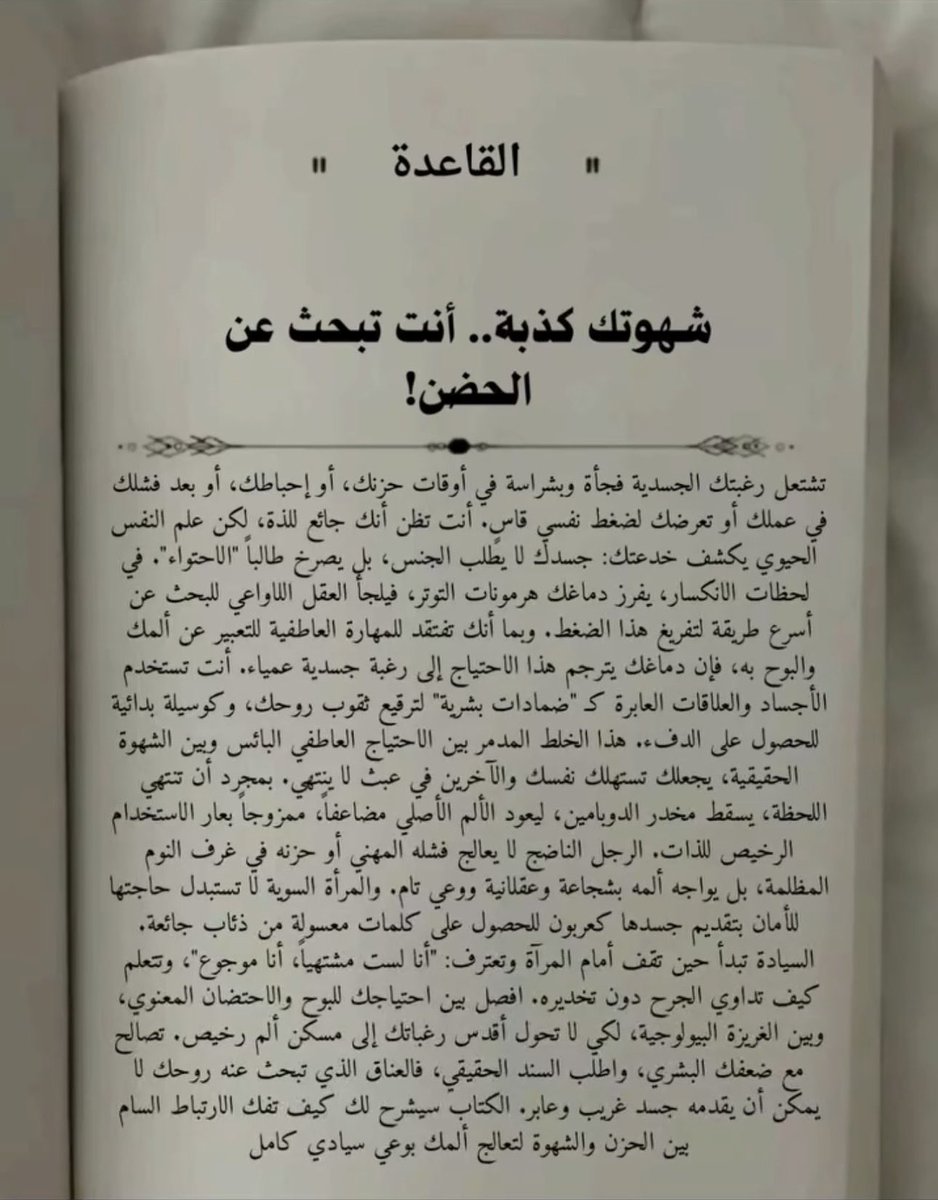 " القاعدة "
شهوتك كذبة.. أنت تبحث عن
الحضن!
تشتعل رغبتك الجسدية فجأة وبشراسة في أوقات حزنك، أو إحباطك، أو بعد فشلك
في عملك أو تعرضك لضغط نفسي قاسٍ. أنت تظن أنك جائع للذة، لكن علم النفس
الحيوي يكشف خدعتك: جسدك لا يطلب الجنس، بل يصرخ طالباً "الاحتواء". في
لحظات الانكسار، يفرز دماغك هرمونات التوتر، فيلجأ العقل اللاواعي للبحث عن
أسرع طريقة لتفريغ هذا الضغط. وبما أنك تفتقد للمهارة العاطفية للتعبير عن ألمك
والبوح به، فإن دماغك يترجم هذا الاحتياج إلى رغبة جسدية عمياء. أنت تستخدم
الأجساد والعلاقات العابرة كـ "ضمادات بشرية" لترقيع ثقوب روحك، وكوسيلة بدائية
للحصول على الدفء. هذا الخلط المدمر بين الاحتياج العاطفي البائس وبين الشهوة
الحقيقية، يجعلك تستهلك نفسك والآخرين في عبث لا ينتهي. بمجرد أن تنتهي
اللحظة، يسقط مخدر الدوبامين، ليعود الألم الأصلي مضاعفاً، ممزوجاً بعار الاستخدام
الرخيص للذات. الرجل الناضج لا يعالج فشله المهني أو حزنه في غرف النوم
المظلمة، بل يواجه ألمه بشجاعة وعقلانية ووعي تام. والمرأة السوية لا تستبدل حاجتها
للأمان بتقديم جسدها كعربون للحصول على كلمات معسولة من ذئاب جائعة.
السيادة تبدأ حين تقف أمام المرآة وتعترف: "أنا لست مشتهياً، أنا موجوع"، وتتعلم
كيف تداوي الجرح دون تخديره. افصل بين احتياجك للبوح والاحتضان المعنوي،
وبين الغريزة البيولوجية، لكي لا تحول أقدس رغباتك إلى مسكن ألم رخيص. تصالح
مع ضعفك البشري، واطلب السند الحقيقي، فالعناق الذي تبحث عنه روحك لا
يمكن أن يقدمه جسد غريب وعابر. الكتاب سيشرح لك كيف تفك الارتباط السام
بين الحزن والشهوة لتعالج ألمك بوعي سيادي كامل